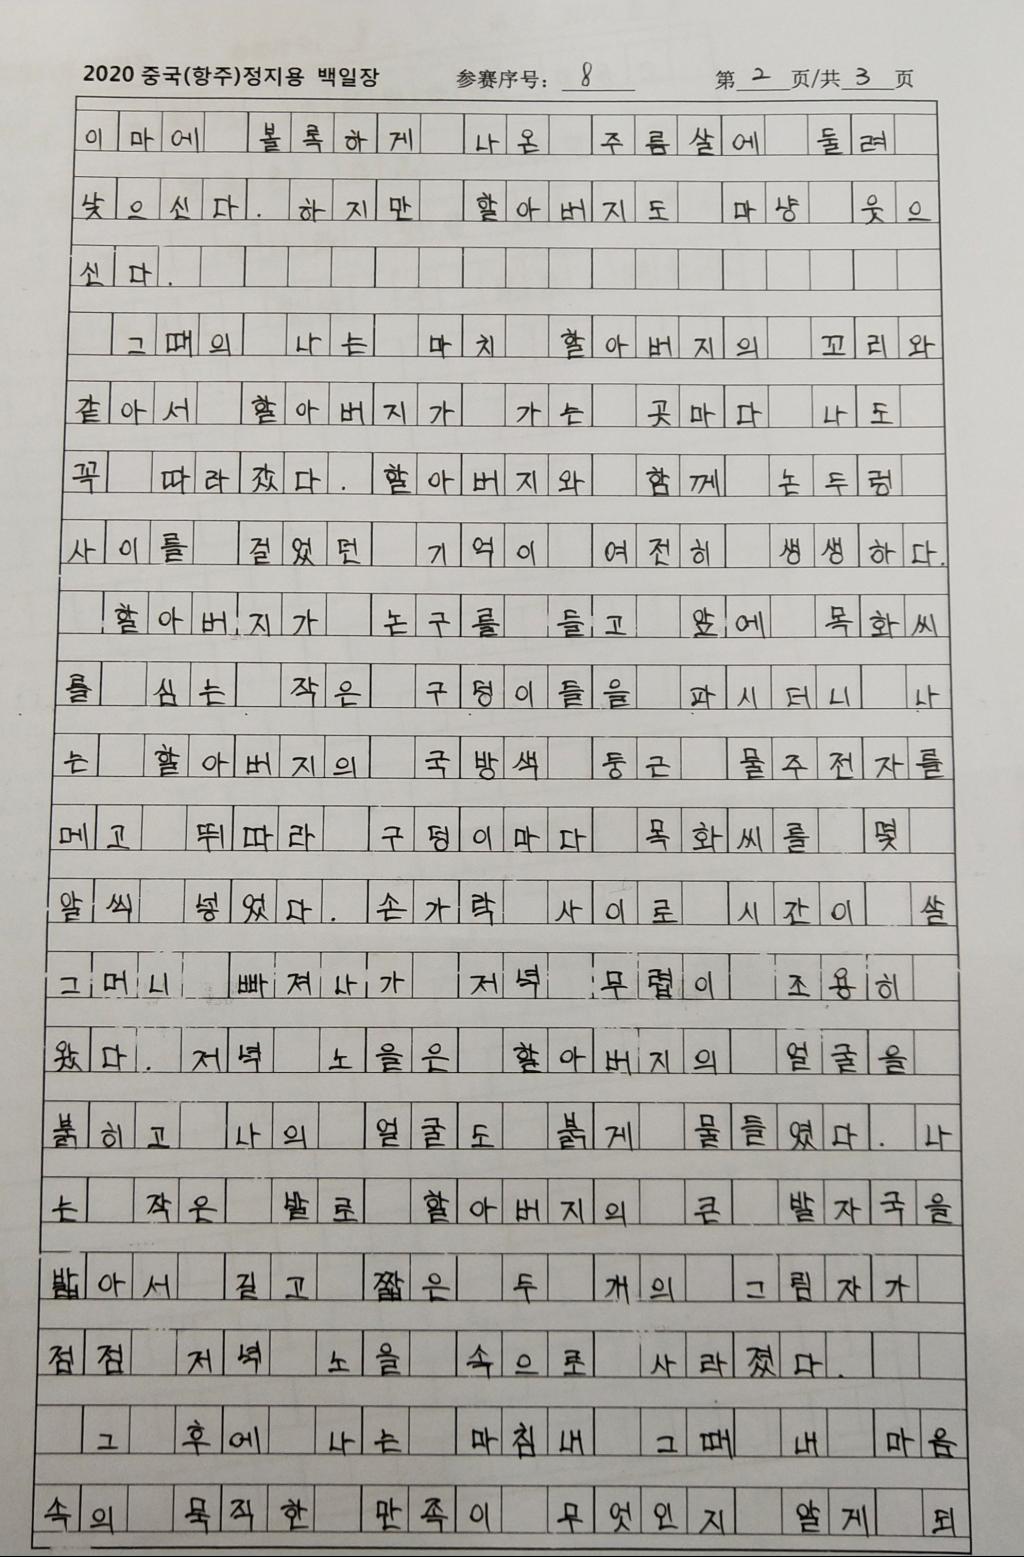 2020 중국(항주)정지용 백일장 参赛序号: 8 第 2 页/共 3 页
이마에 볼록하게 나온 주름살에 둘려
낯으신다. 하지만 할아버지도 마냥 웃으
신다.
그때의 나는 마치 할아버지의 꼬리와
같아서 할아버지가 가는 곳마다 나도
꼭 따라갔다. 할아버지와 함께 논두렁
사이를 걸었던 기억이 여전히 생생하다.
할아버지가 논구를 들고 앞에 목화씨
를 심는 작은 구덩이들을 파시더니 나
는 할아버지의 국방색 둥근 물주전자를
메고 뛰따라 구덩이마다 목화씨를 몇
알씩 넣었다. 손가락 사이로 시간이 살
그머니 빠져나가 저녁 무렵이 조용히
왔다. 저녁 노을은 할아버지의 얼굴을
붉히고 나의 얼굴도 붉게 물들였다. 나
는 작은 발로 할아버지의 큰 발자국을
밟아서 길고 짧은 두 개의 그림자가
점점 저녁 노을 속으로 사라졌다.
그 후에 나는 마침내 그때 내 마음
속의 묵직한 만족이 무엇인지 알게 되